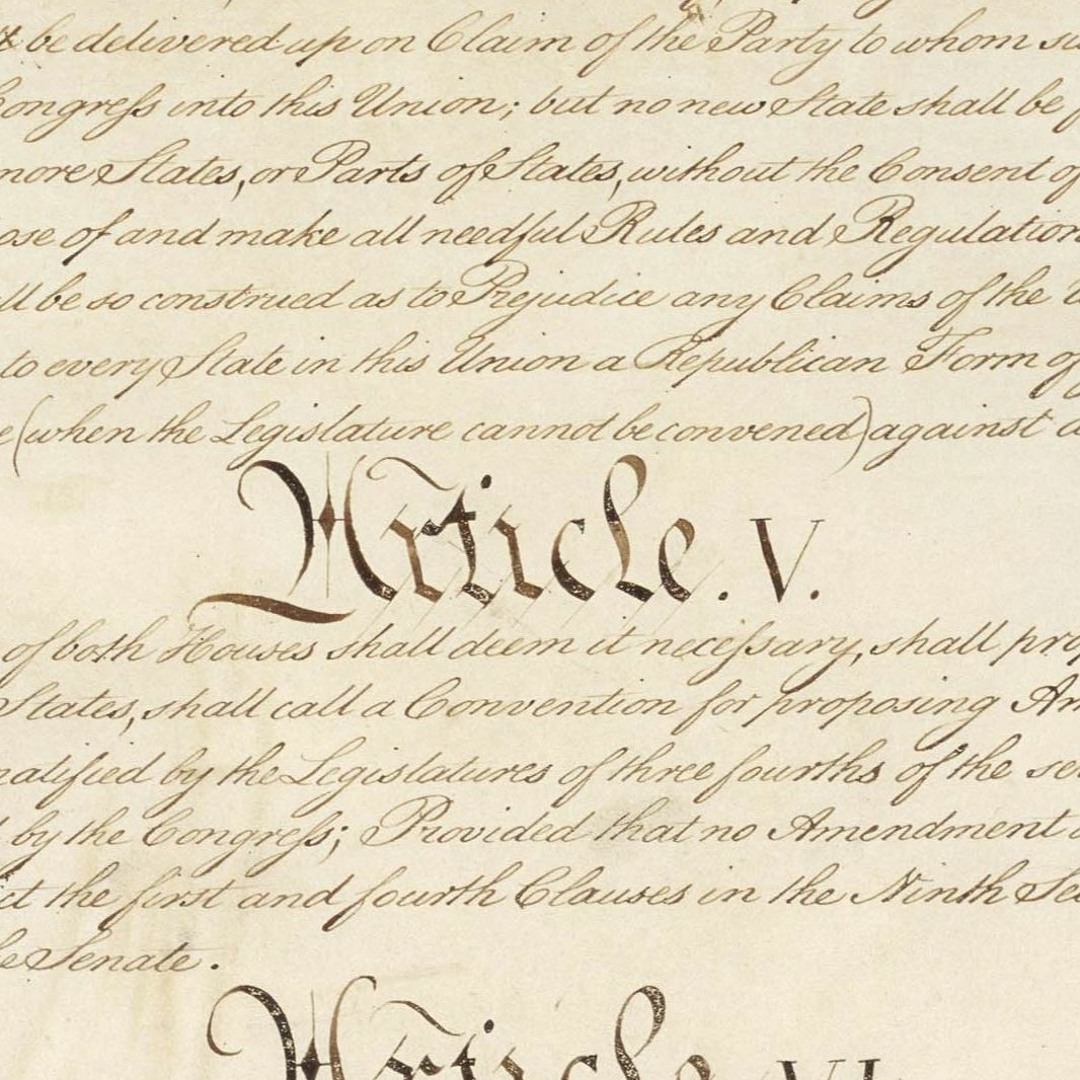 be delivered up on Claim of the Party to whom su
Congreſs into this Union; but no new State shall be f
more States, or Parts of States, without the Consent of
ose of and make all needful Rules and Regulation
ll be so construed as to Prejudice any Claims of the U
to every State in this Union a Republican Form of
e (when the Legislature cannot be convened) against d
Article. V.
of both Houses shall deem it neceſsary, shall prop
States, shall call a Convention for proposing Am
ratified by the Legislatures of three fourths of the sev
by the Congreſs; Provided that no Amendment
ct the first and fourth Clauses in the Ninth Sec
e Senate.
Article. VI